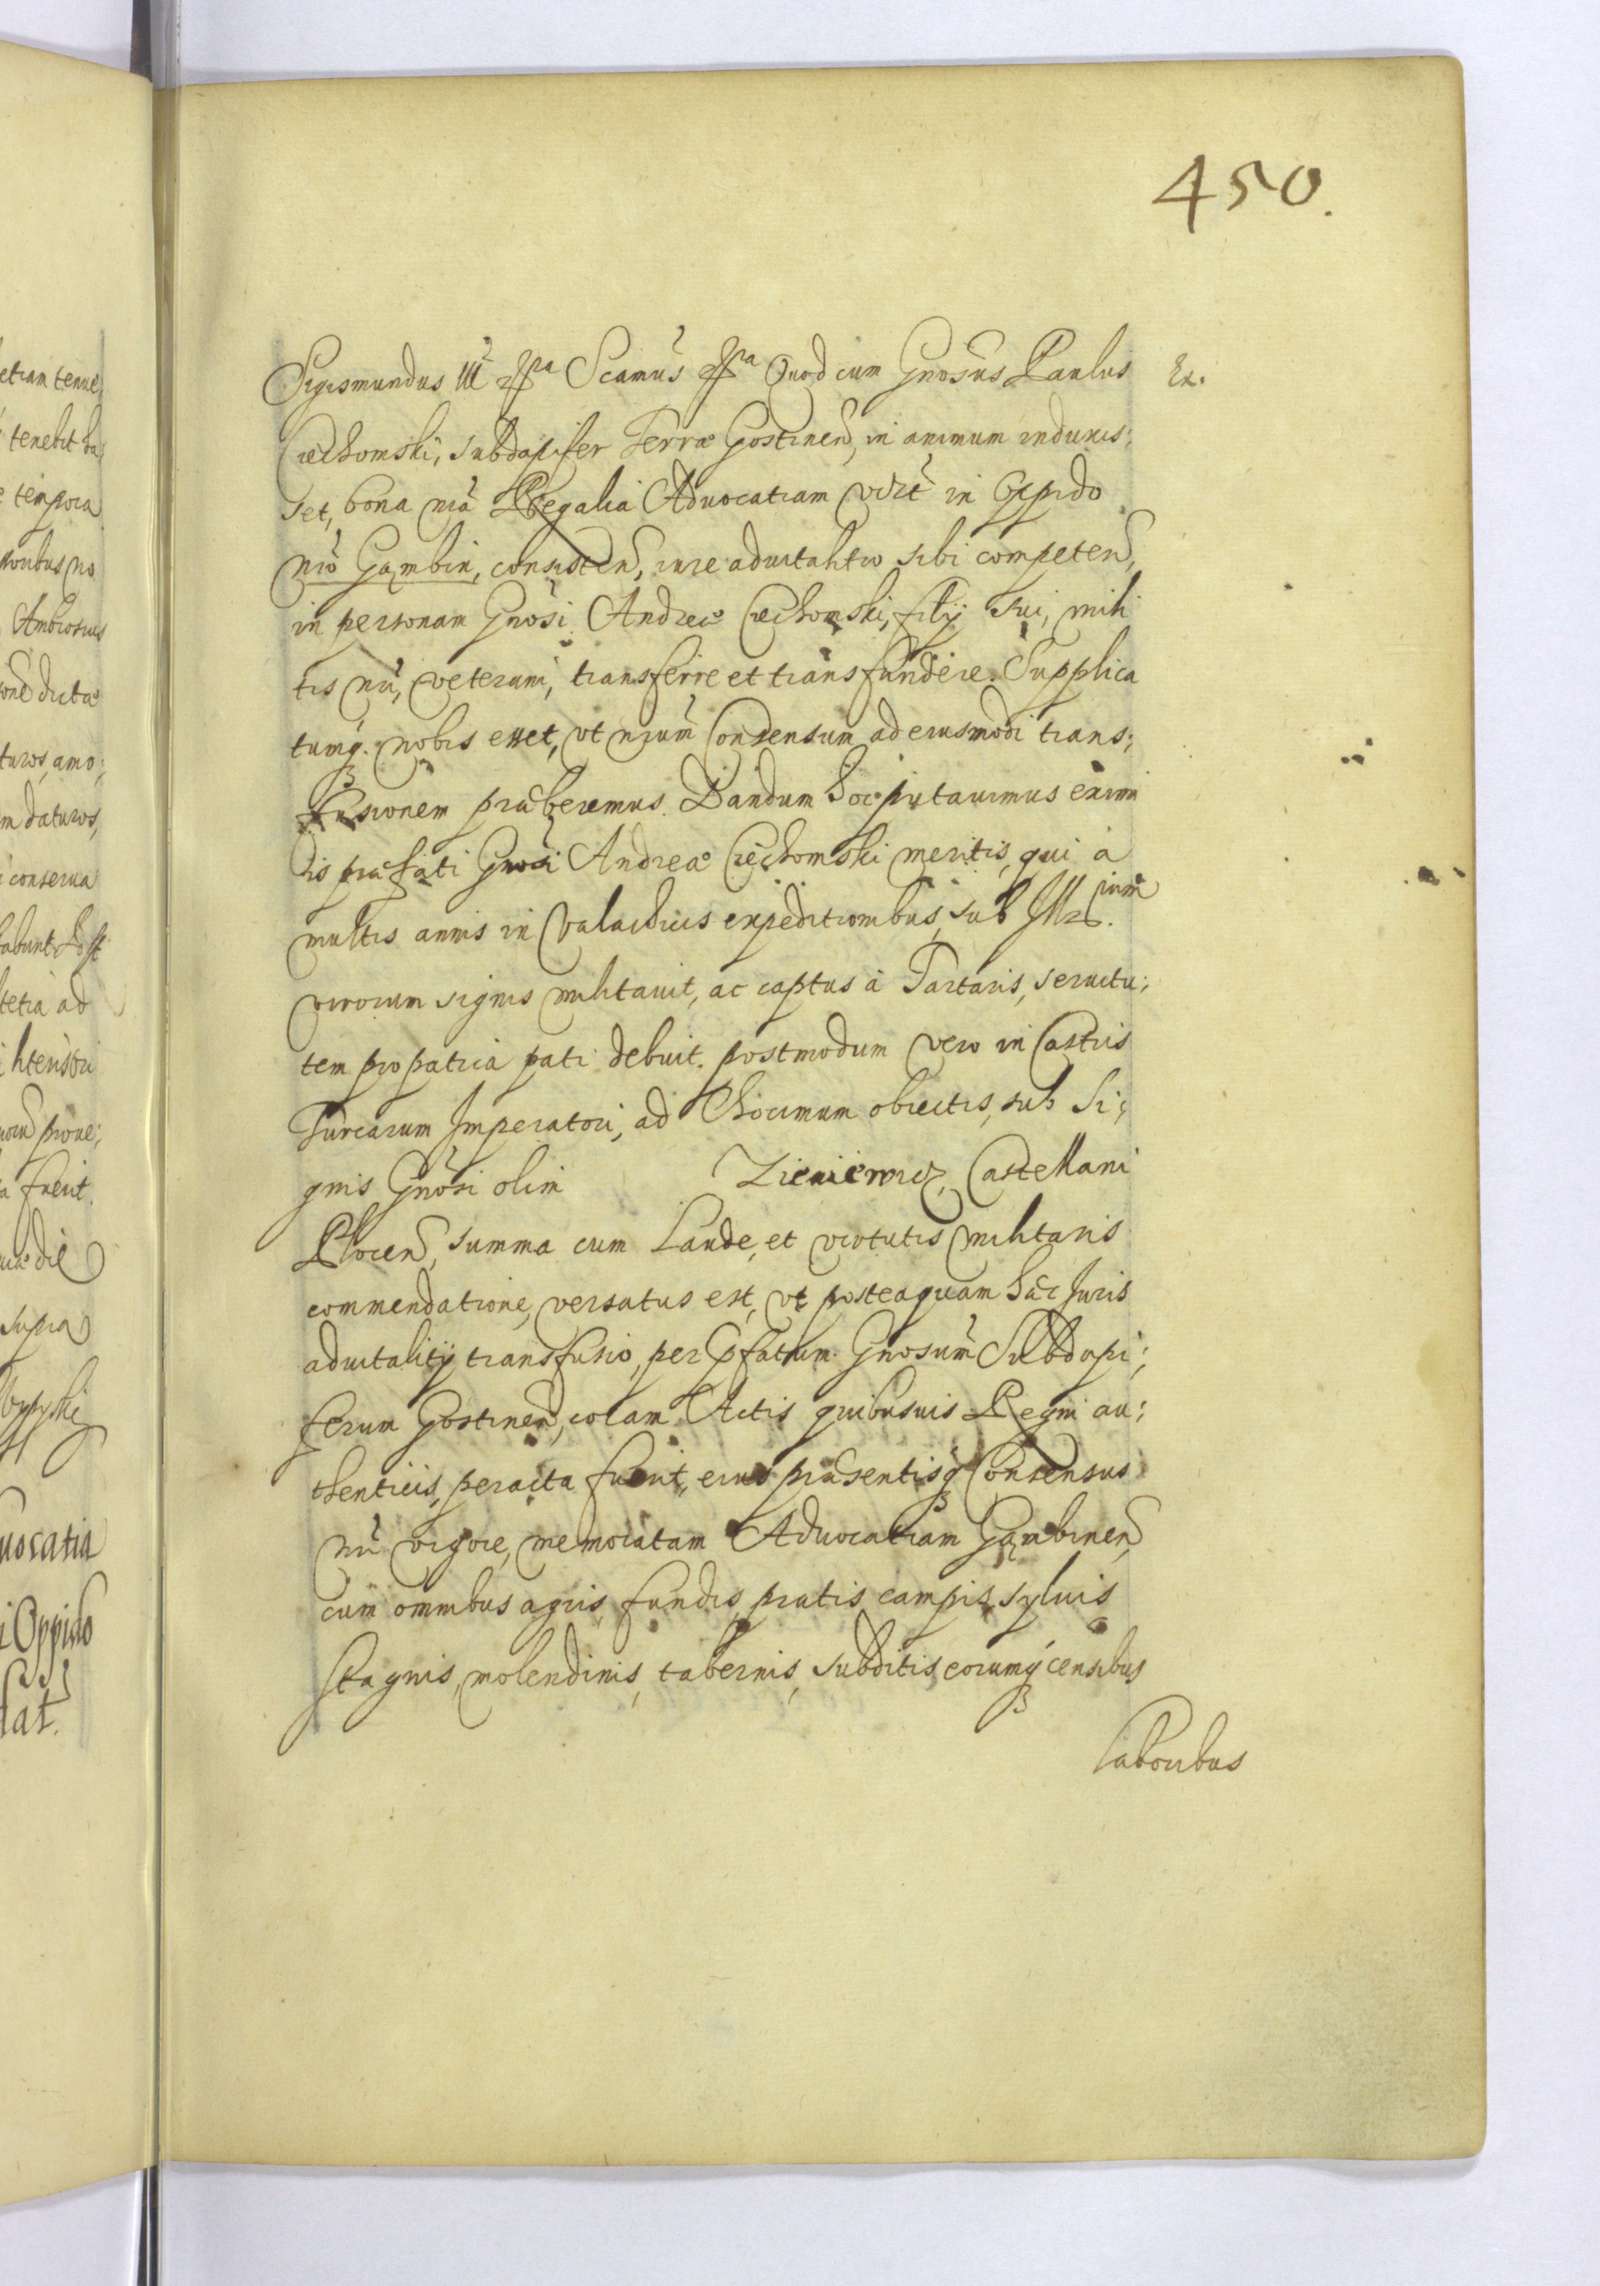 450.
Sigismundus III etc̃a Scamus etc̃a Quod cum Gnosus Paulus Ex.
Ciechomski, Subdapifer Terræ Gostinen, in animum induxis;
set, bona nrã Regalia Aduocatiam vidlt in Oppido
nrõ Gambin, consisten, iure aduitalitio sibi competen,
in personam Gnosi Andreæ Ciechomski, filÿ sui, mili
tis nri, veterani, transferre et transfundere. Supplica
tumq. nobis esset, vt nrum Consensum ad eiusmodi trans;
fusionem præberemus. Dandum hoc putauimus exim
ijs præfati Gnosi Andreæ Ciechomski meritis, qui à
multis annis in Valachicis expeditionibus, sub Illr. ium
virorum signis militauit, ac captus à Tartaris, seruitu;
tem pro patria pati debuit. postmodum vero in Castris
Turcarum Imperatori, ad Chocimum obiectis, sub Si;
gnis Gnosi olim Zieniewic, Castellani
Plocen, summa cum Laude, et virtutis militaris
commendatione, versatus est, vt posteaquam hæc Juris
aduitalitÿ transfusio, per Præfatum Gnosum Subdapi;
ferum Gostinen, coram Actis quibusuis Regni au;
thenticis, peracta fuerit, eius præsentisq Consensus
nri vigore, memoratam Aduocatiam Gambinen,
cum omnibus agris, fundis, pratis, campis, syluis
stagnis, molendinis, tabernis, subditis, eorumq censibus
laboribus
etiam tenue,
tenebit ha
e tempora
Ambrosius
dictæ
turos, amo;
m daturos,
conserua
tabunt. Post
ad
fuerit.
die
supra
uocatia
i Oppido
dat.